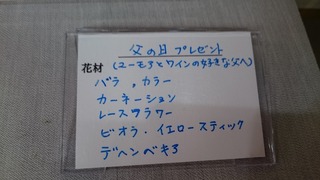 父の日プレゼント
花材 (ユーモアとワインの好きな父へ)
バラ , カラー
カーネーション
レースフラワー
ビオラ・イエロースティック
デヘンベキア